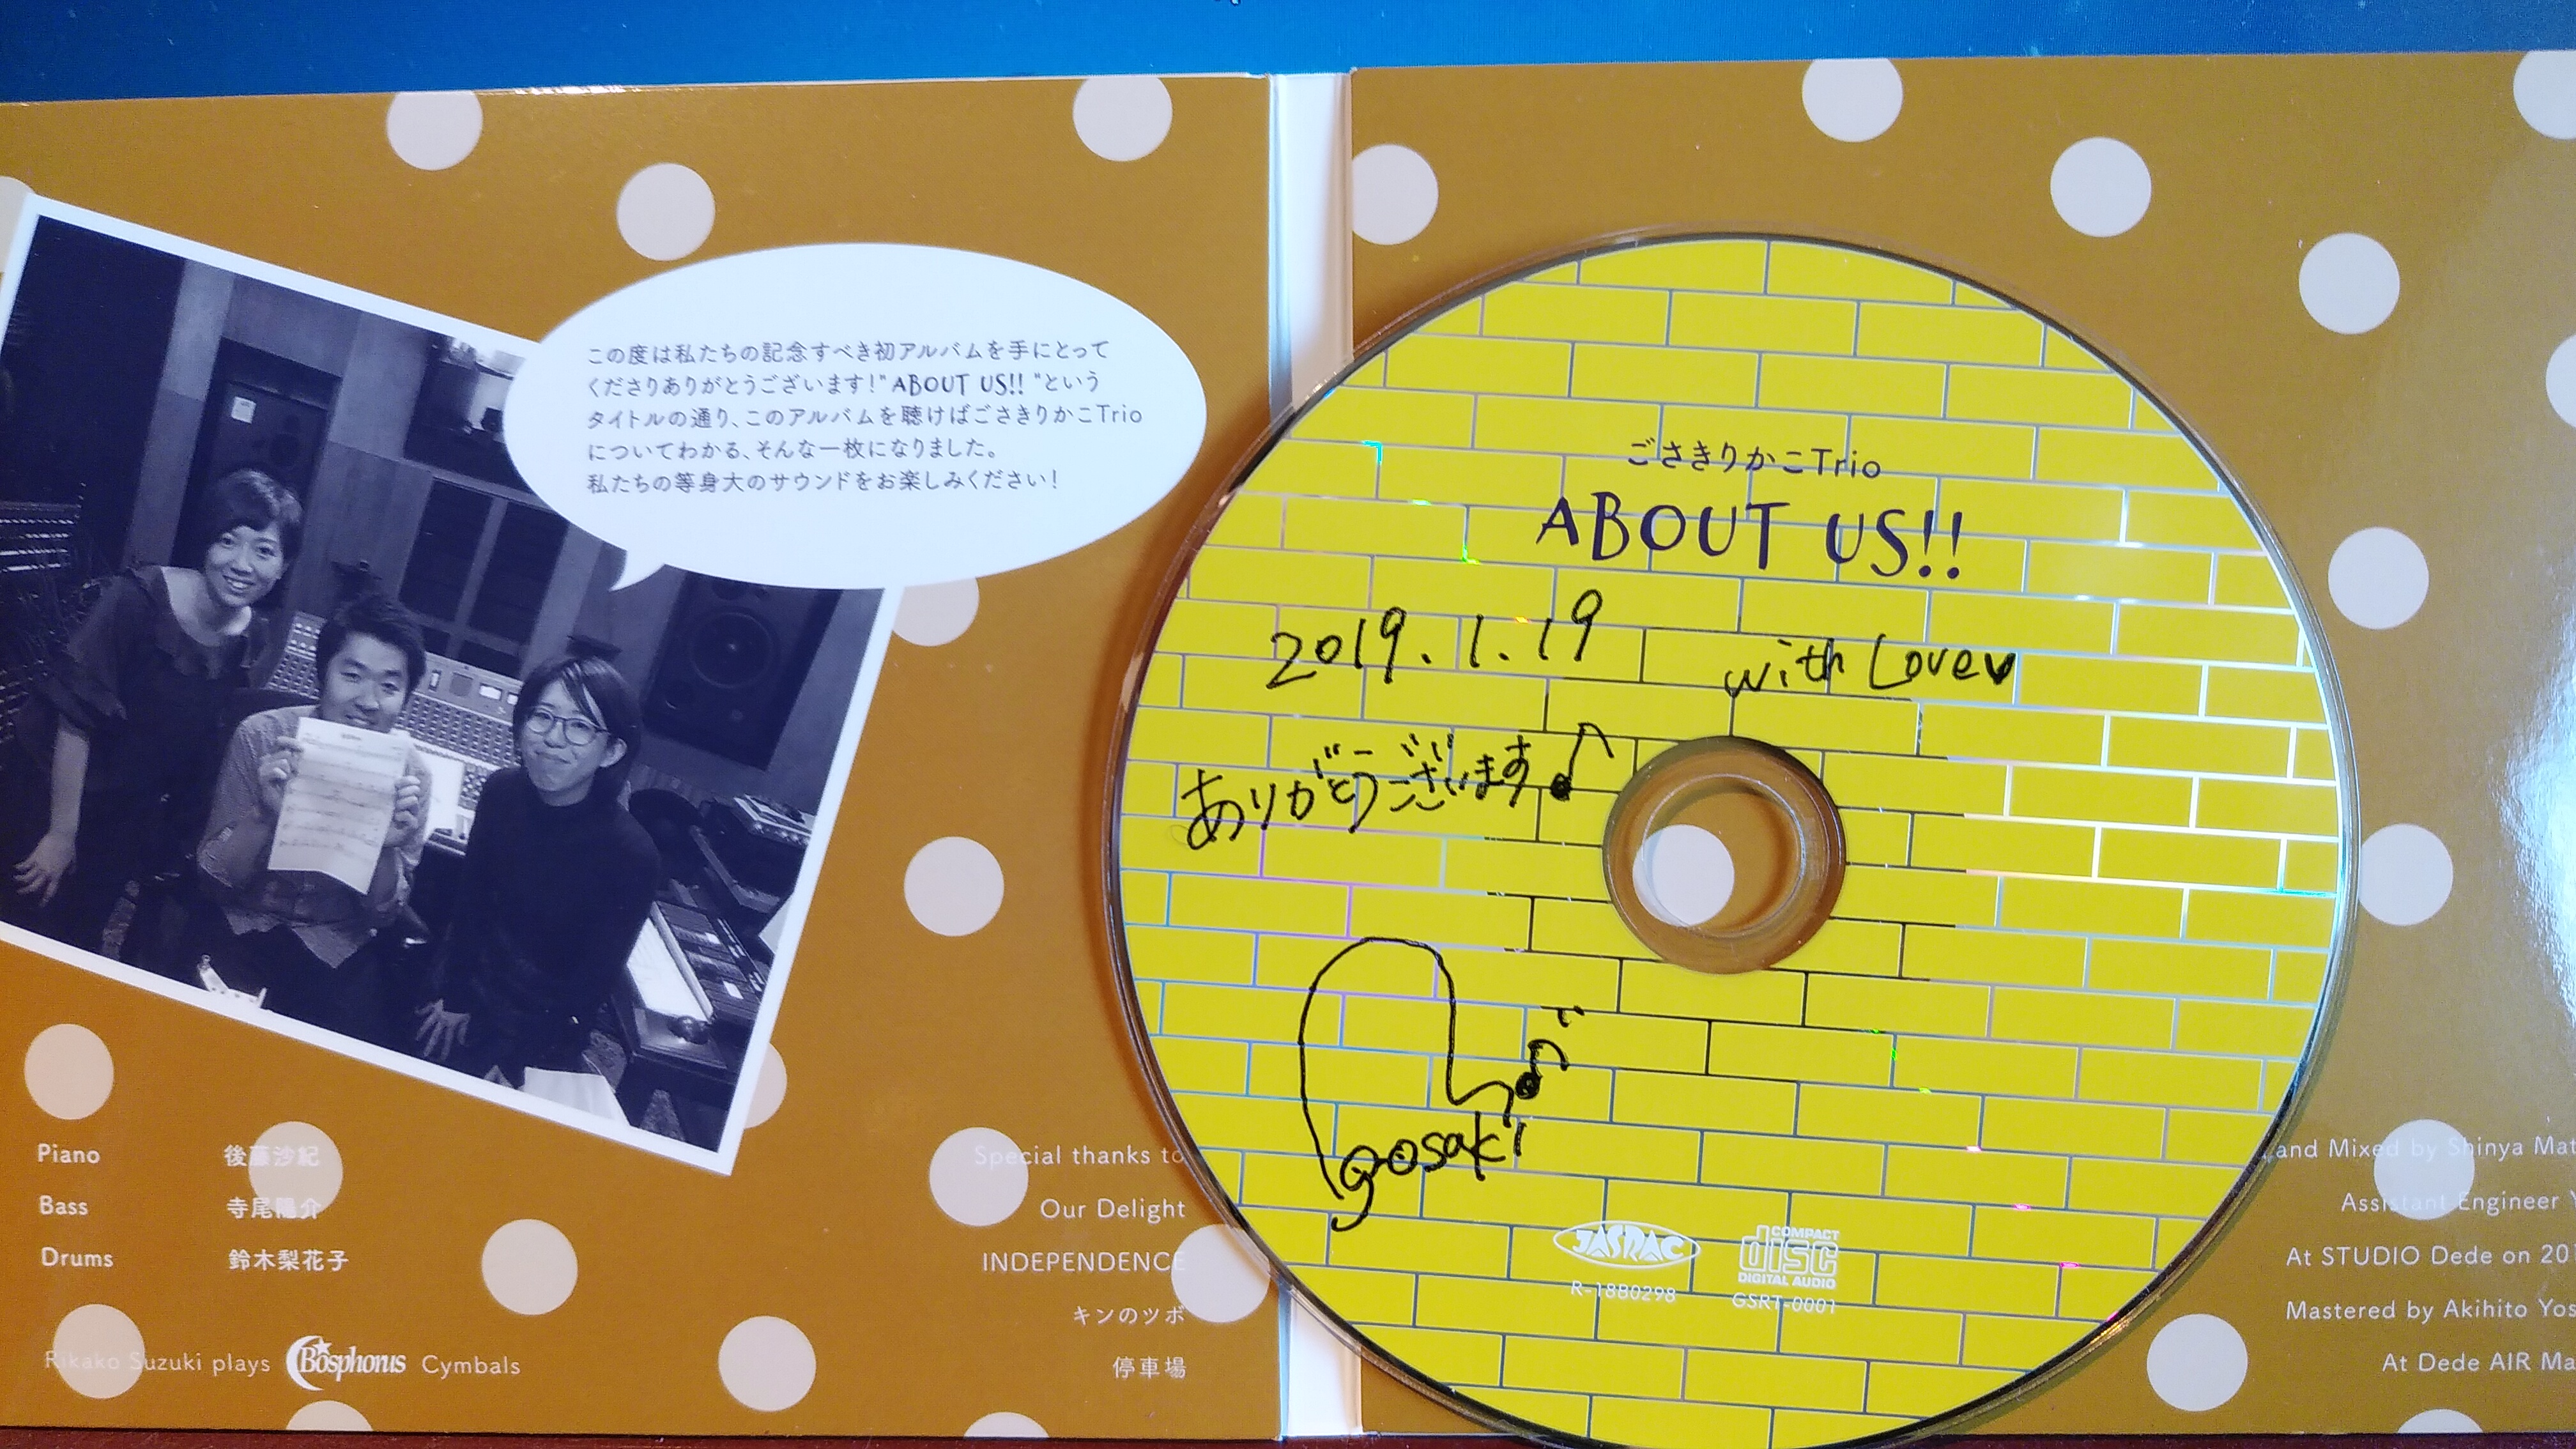 この度は私たちの記念すべき初アルバムを手にとって
くださりありがとうございます!"ABOUT US!! "という
タイトルの通り、このアルバムを聴けばごさきりかこTrio
についてわかる、そんな一枚になりました。
私たちの等身大のサウンドをお楽しみください!
Piano 後藤沙紀
Bass 寺尾陽介
Drums 鈴木梨花子
Rikako Suzuki plays Bosphorus Cymbals
Special thanks to
Our Delight
INDEPENDENCE
キンのツボ
停車場
ごさきりかこTrio
ABOUT US!!
2019.1.19 with Love
ありがとうございます
gosaki
JASRAC
R-18B0298
COMPACT
disc
DIGITAL AUDIO
GSRT-0001
and Mixed by Shinya
Assistant Engineer
At STUDIO Dede on
Mastered by Akihito
At Dede AIR